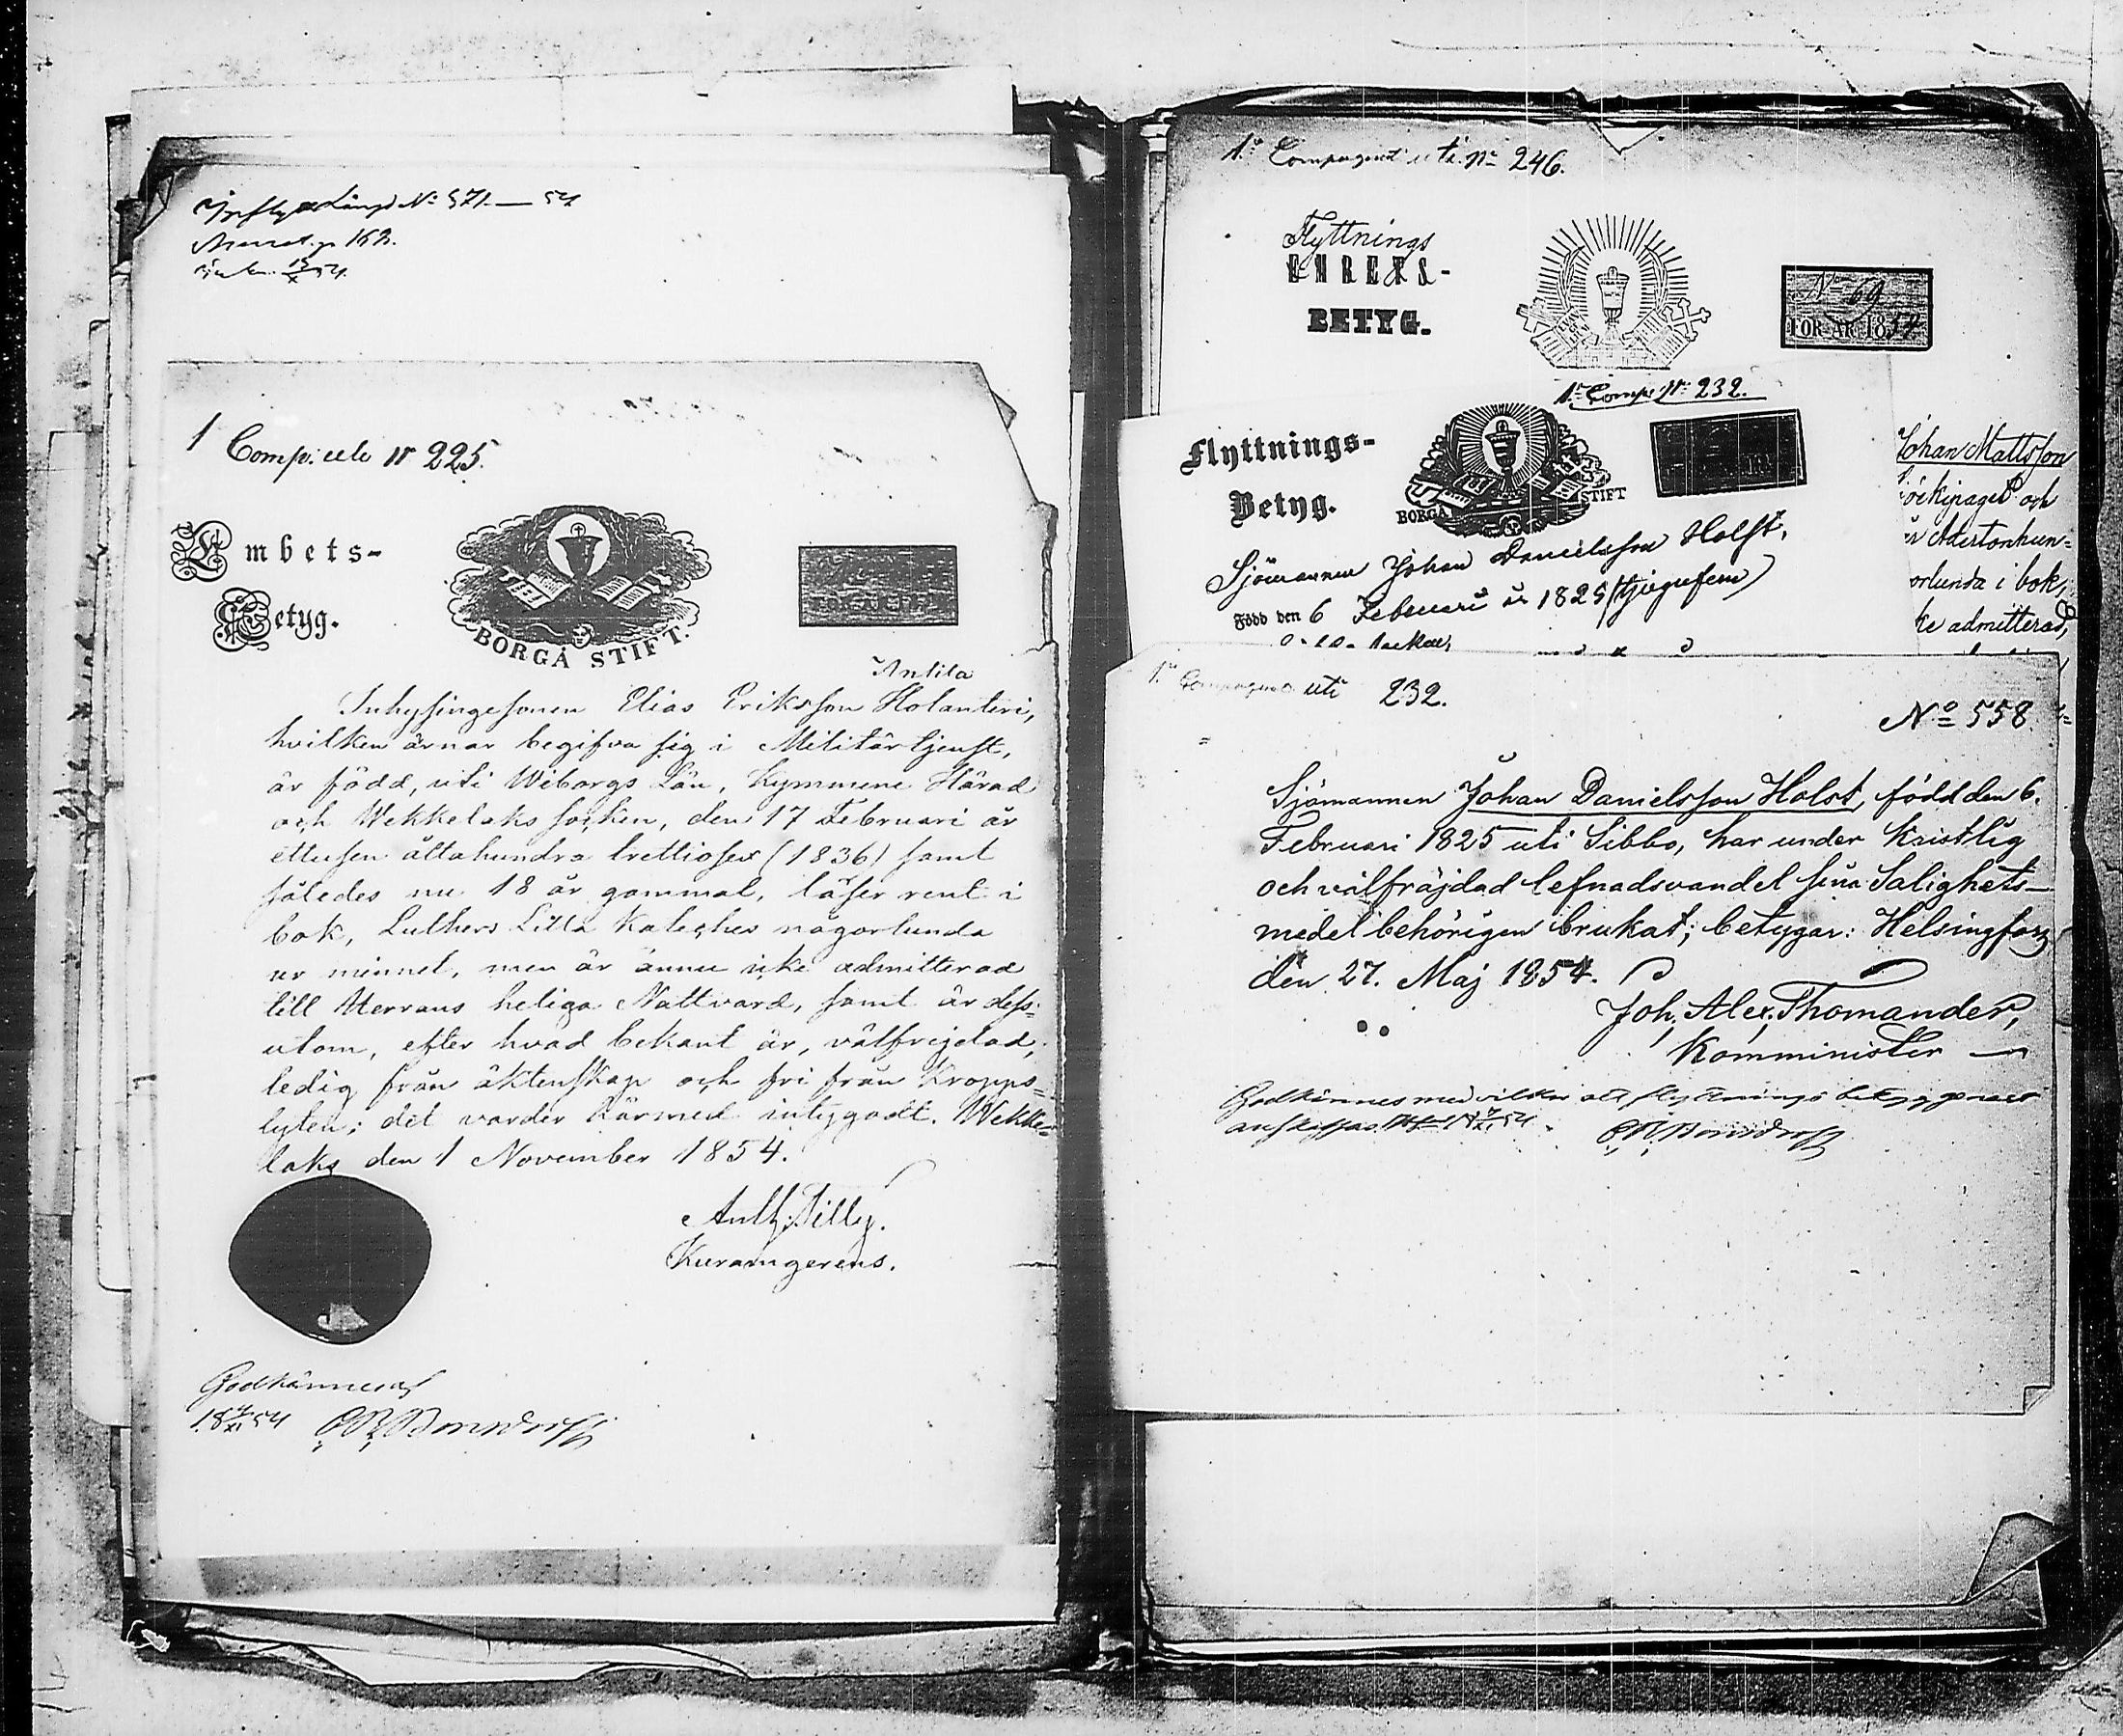 Inflyttn. Längd No 571. — 54
p 162.
1 Comp. uti No 225.
Embets-
Betyg.
BORGÅ STIFT.
Antila
Inhysingesonen Elias Eriksson Holanteri,
hvilken ärnar begifva sig i Militärtjenst,
är född, uti Wiborgs Län, Kymmene Härad
och Wekkelaks socken, den 17 Februari år
ettusen åttahundra trettiosex (1836) samt
således nu 18 år gammal, läser rent i
bok, Luthers Lilla Kateches någorlunda
ur minnet, men är ännu icke admitterad
till Herrans heliga Nattvard, samt är dess-
utom, efter hvad bekant är, välfrejdad,
ledig från äktenskap och fri från Kropps-
lyten; det varder härmed intygadt. Wekke-
laks den 1 November 1854.
Anth. Tilly.
Kuramgerens.
Godkännes
18 54
1:a Compagniet uti No 246.
Flyttnings
EMBETS-
BETYG.
No 69
FÖR ÅR 1854.
1:a Comp. No 232.
Flyttnings-
Betyg.
BORGÅ STIFT
Johan Mattsson
och
Adertonhun-
orlunda i bok,
ke admitterad,
Sjömannen Johan Danielsson Holst,
Född den 6 Februari år 1825 (tjugufem)
1:a Compagniet uti 232.
No 558.
Sjömannen Johan Danielsson Holst, född den 6.
Februari 1825 uti Sibbo, har under Kristlig
och välfräjdad lefnadsvandel sina Salighets-
medel behörigen brukat; betygar: Helsingfors
den 27. Maj 1854.
Joh. Alex. Thomander,
Komminister
Godkännes med vilkor att flyttnings betyg genast
anskaffas 54